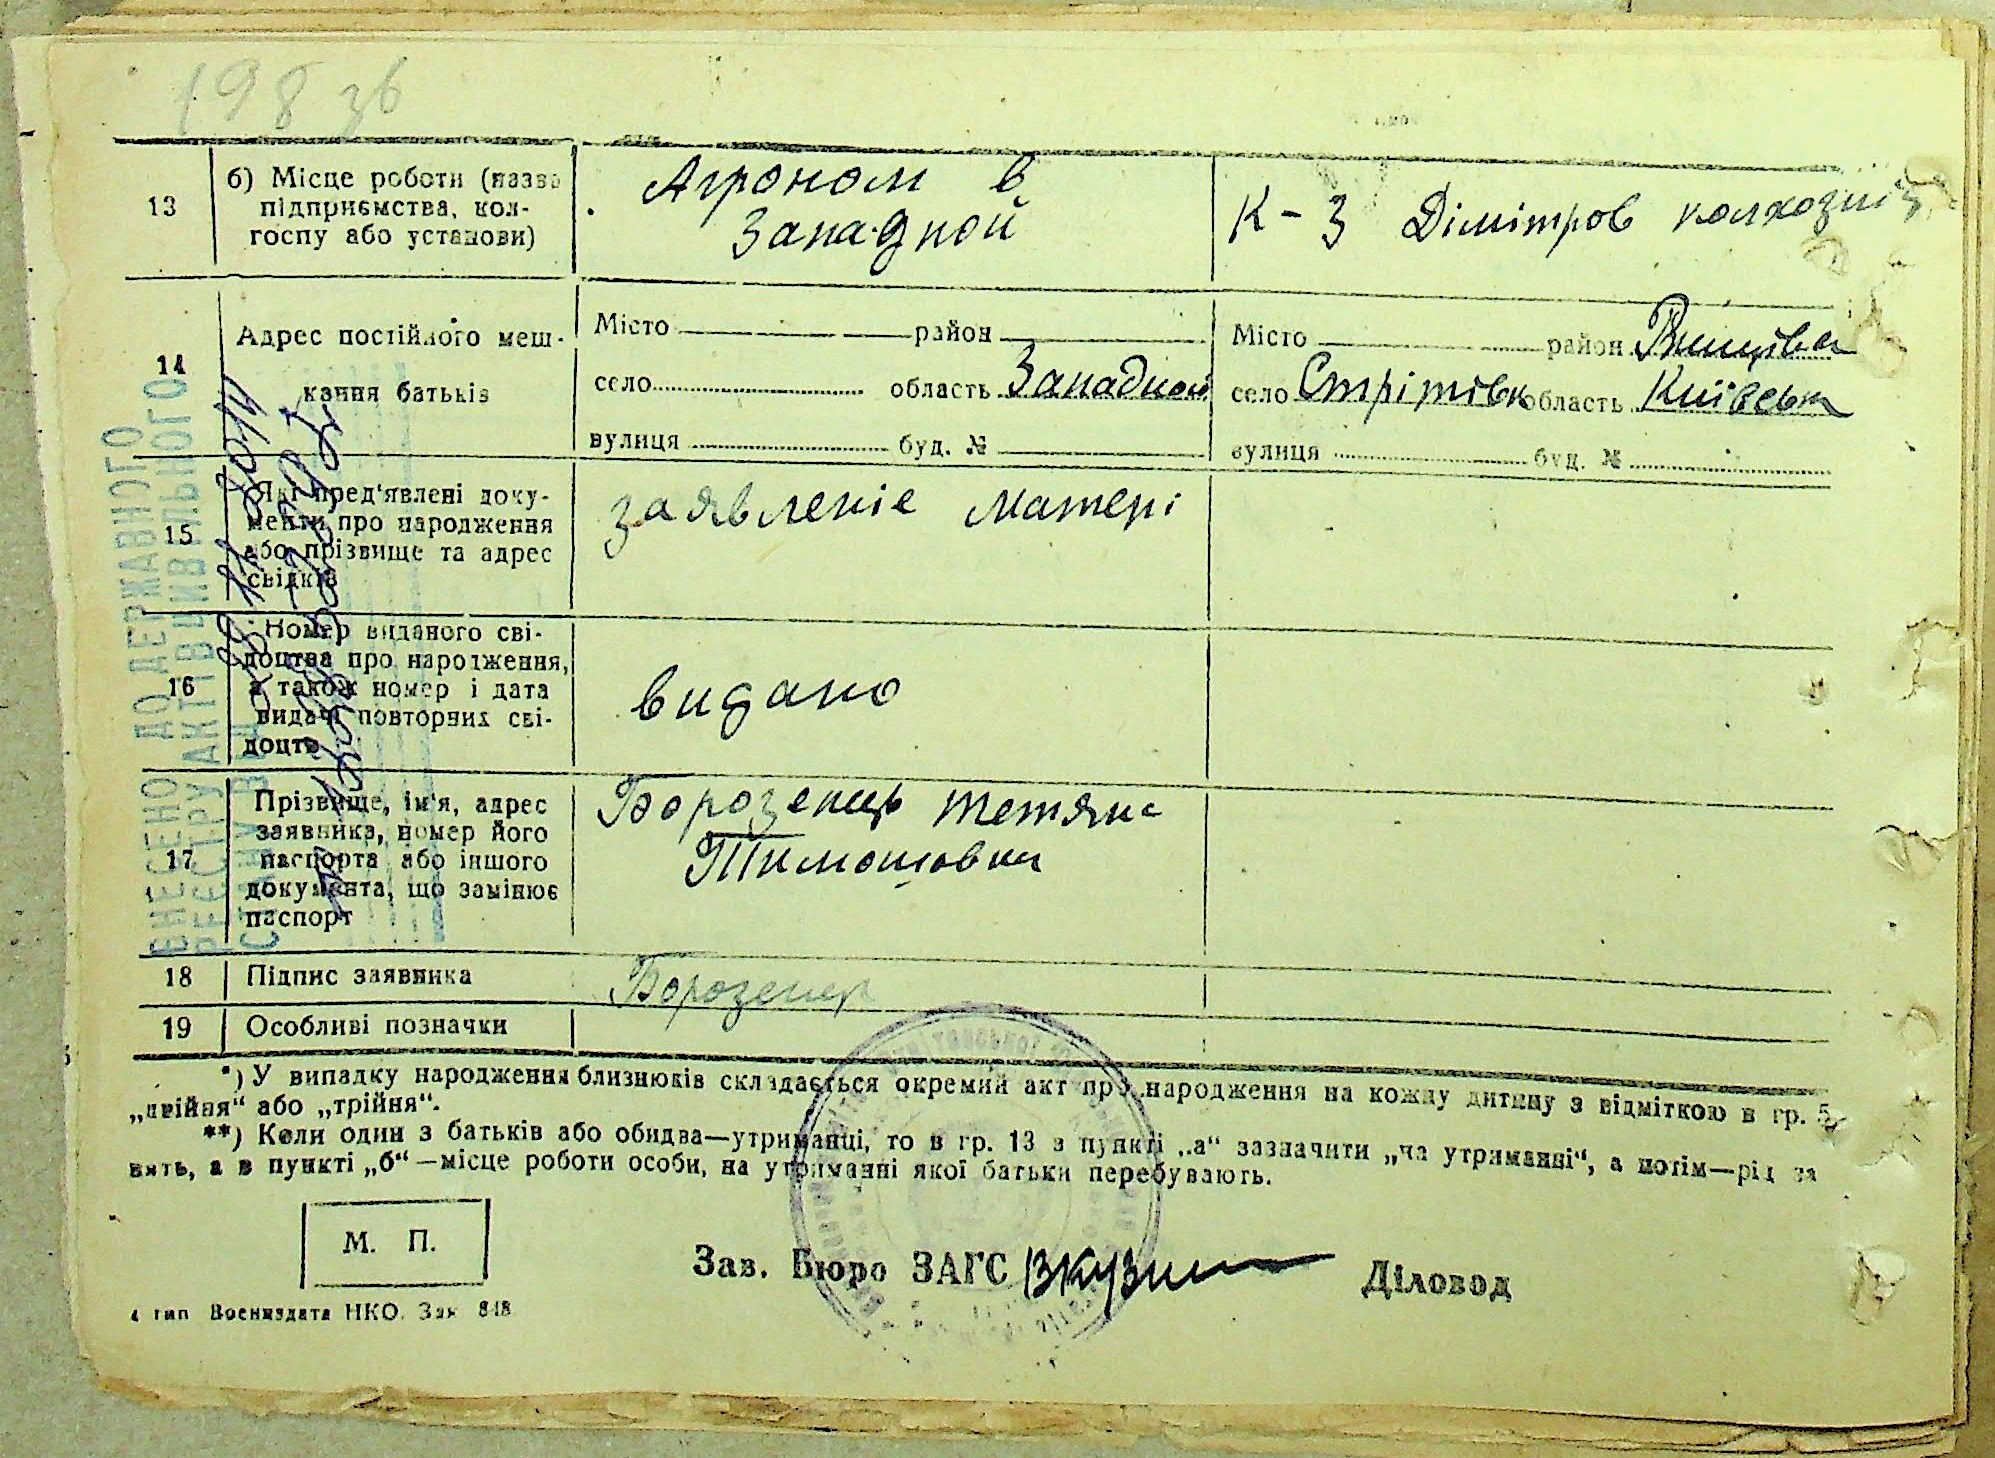 198 зв
13
б) Місце роботи (назва
підприємства, кол-
госпу або установи)
Агроном в
Западной
К-З Дімітров колхозниц
14
Адрес постійного меш-
кання батьків
Місто район
село область Западной
вулиця буд. №
Місто район
село Стрітівк область Київська
вулиця буд. №
15
Які пред'явлені доку-
менти про народження
або прізвище та адрес
свідків
заявленіе матері
16
Номер виданого сві-
доцтва про народження,
а також номер і дата
видачі повторних сві-
доцтв
видано
17
Прізвище, ім'я, адрес
заявника, номер його
паспорта або іншого
документа, що замінює
паспорт
Борозенць Тетяна
Тимошовна
18
Підпис заявника
Борозенец
19
Особливі позначки
*) У випадку народження близнюків складається окремий акт про народження на кожну дитину з відміткою в гр. 5
„двійня“ або „трійня“.
**) Коли один з батьків або обидва—утриманці, то в гр. 13 з пункті „а“ зазначити „на утриманні“, а потім—рід за
нять, а в пункті „б“—місце роботи особи, на утриманні якої батьки перебувають.
М. П.
Зав. Бюро ЗАГС
Діловод
4 тип Воениздата НКО. Зак 848
ВНЕСЕНО ДО ДЕРЖАВНОГО
РЕЄСТРУ АКТІВ ЦИВІЛЬНОГО
СТАНУ